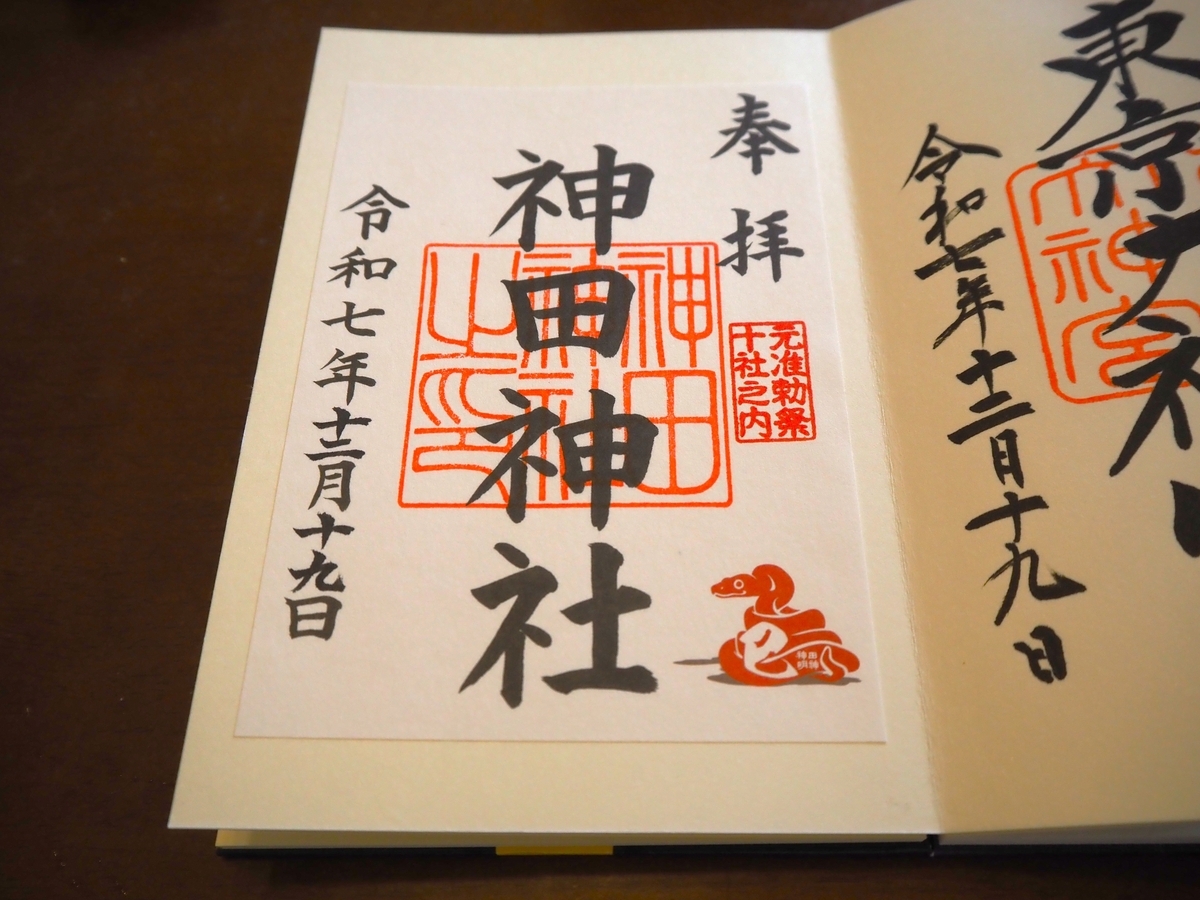 東京大神
令和七年十二月十九日
奉拝
元准勅祭
十社之内
神田神社
神田
神社
之印
巳
神田
明神
令和七年十二月十九日